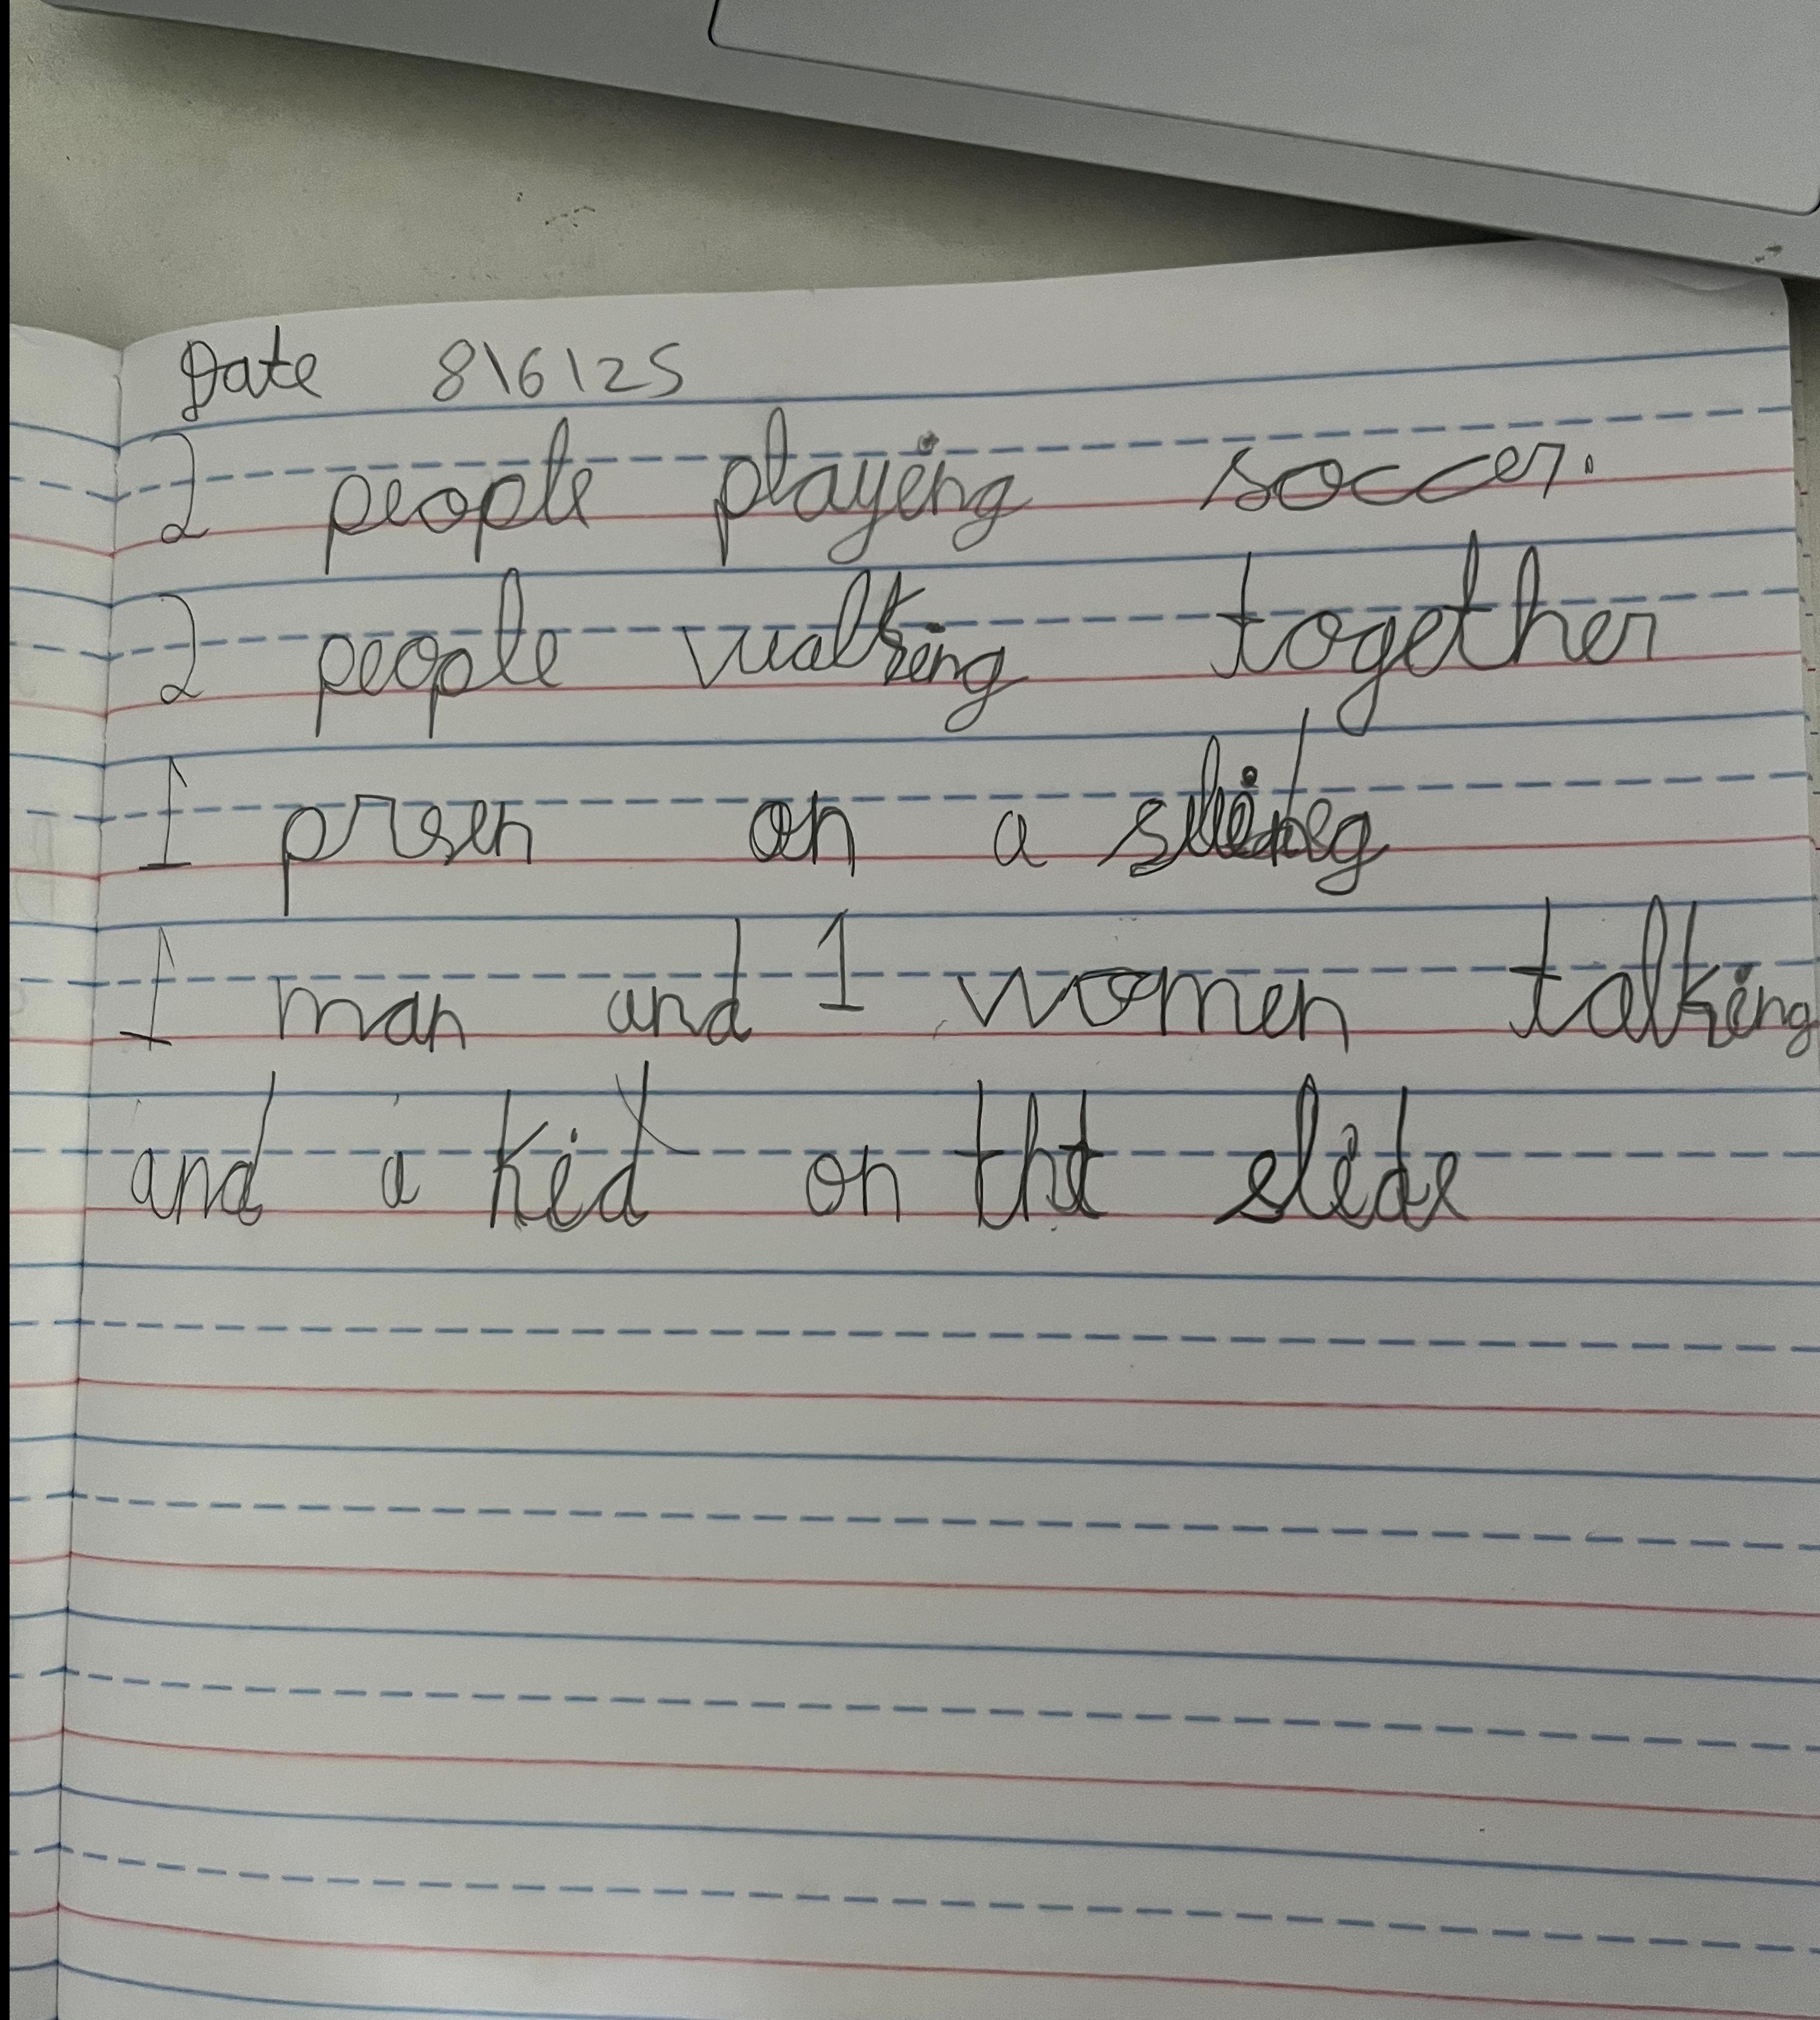 Date 8\6\25
2 people playing soccer.
2 people walking together
1 prsen on a
1 man and 1 women talking
and a kid on tht slide